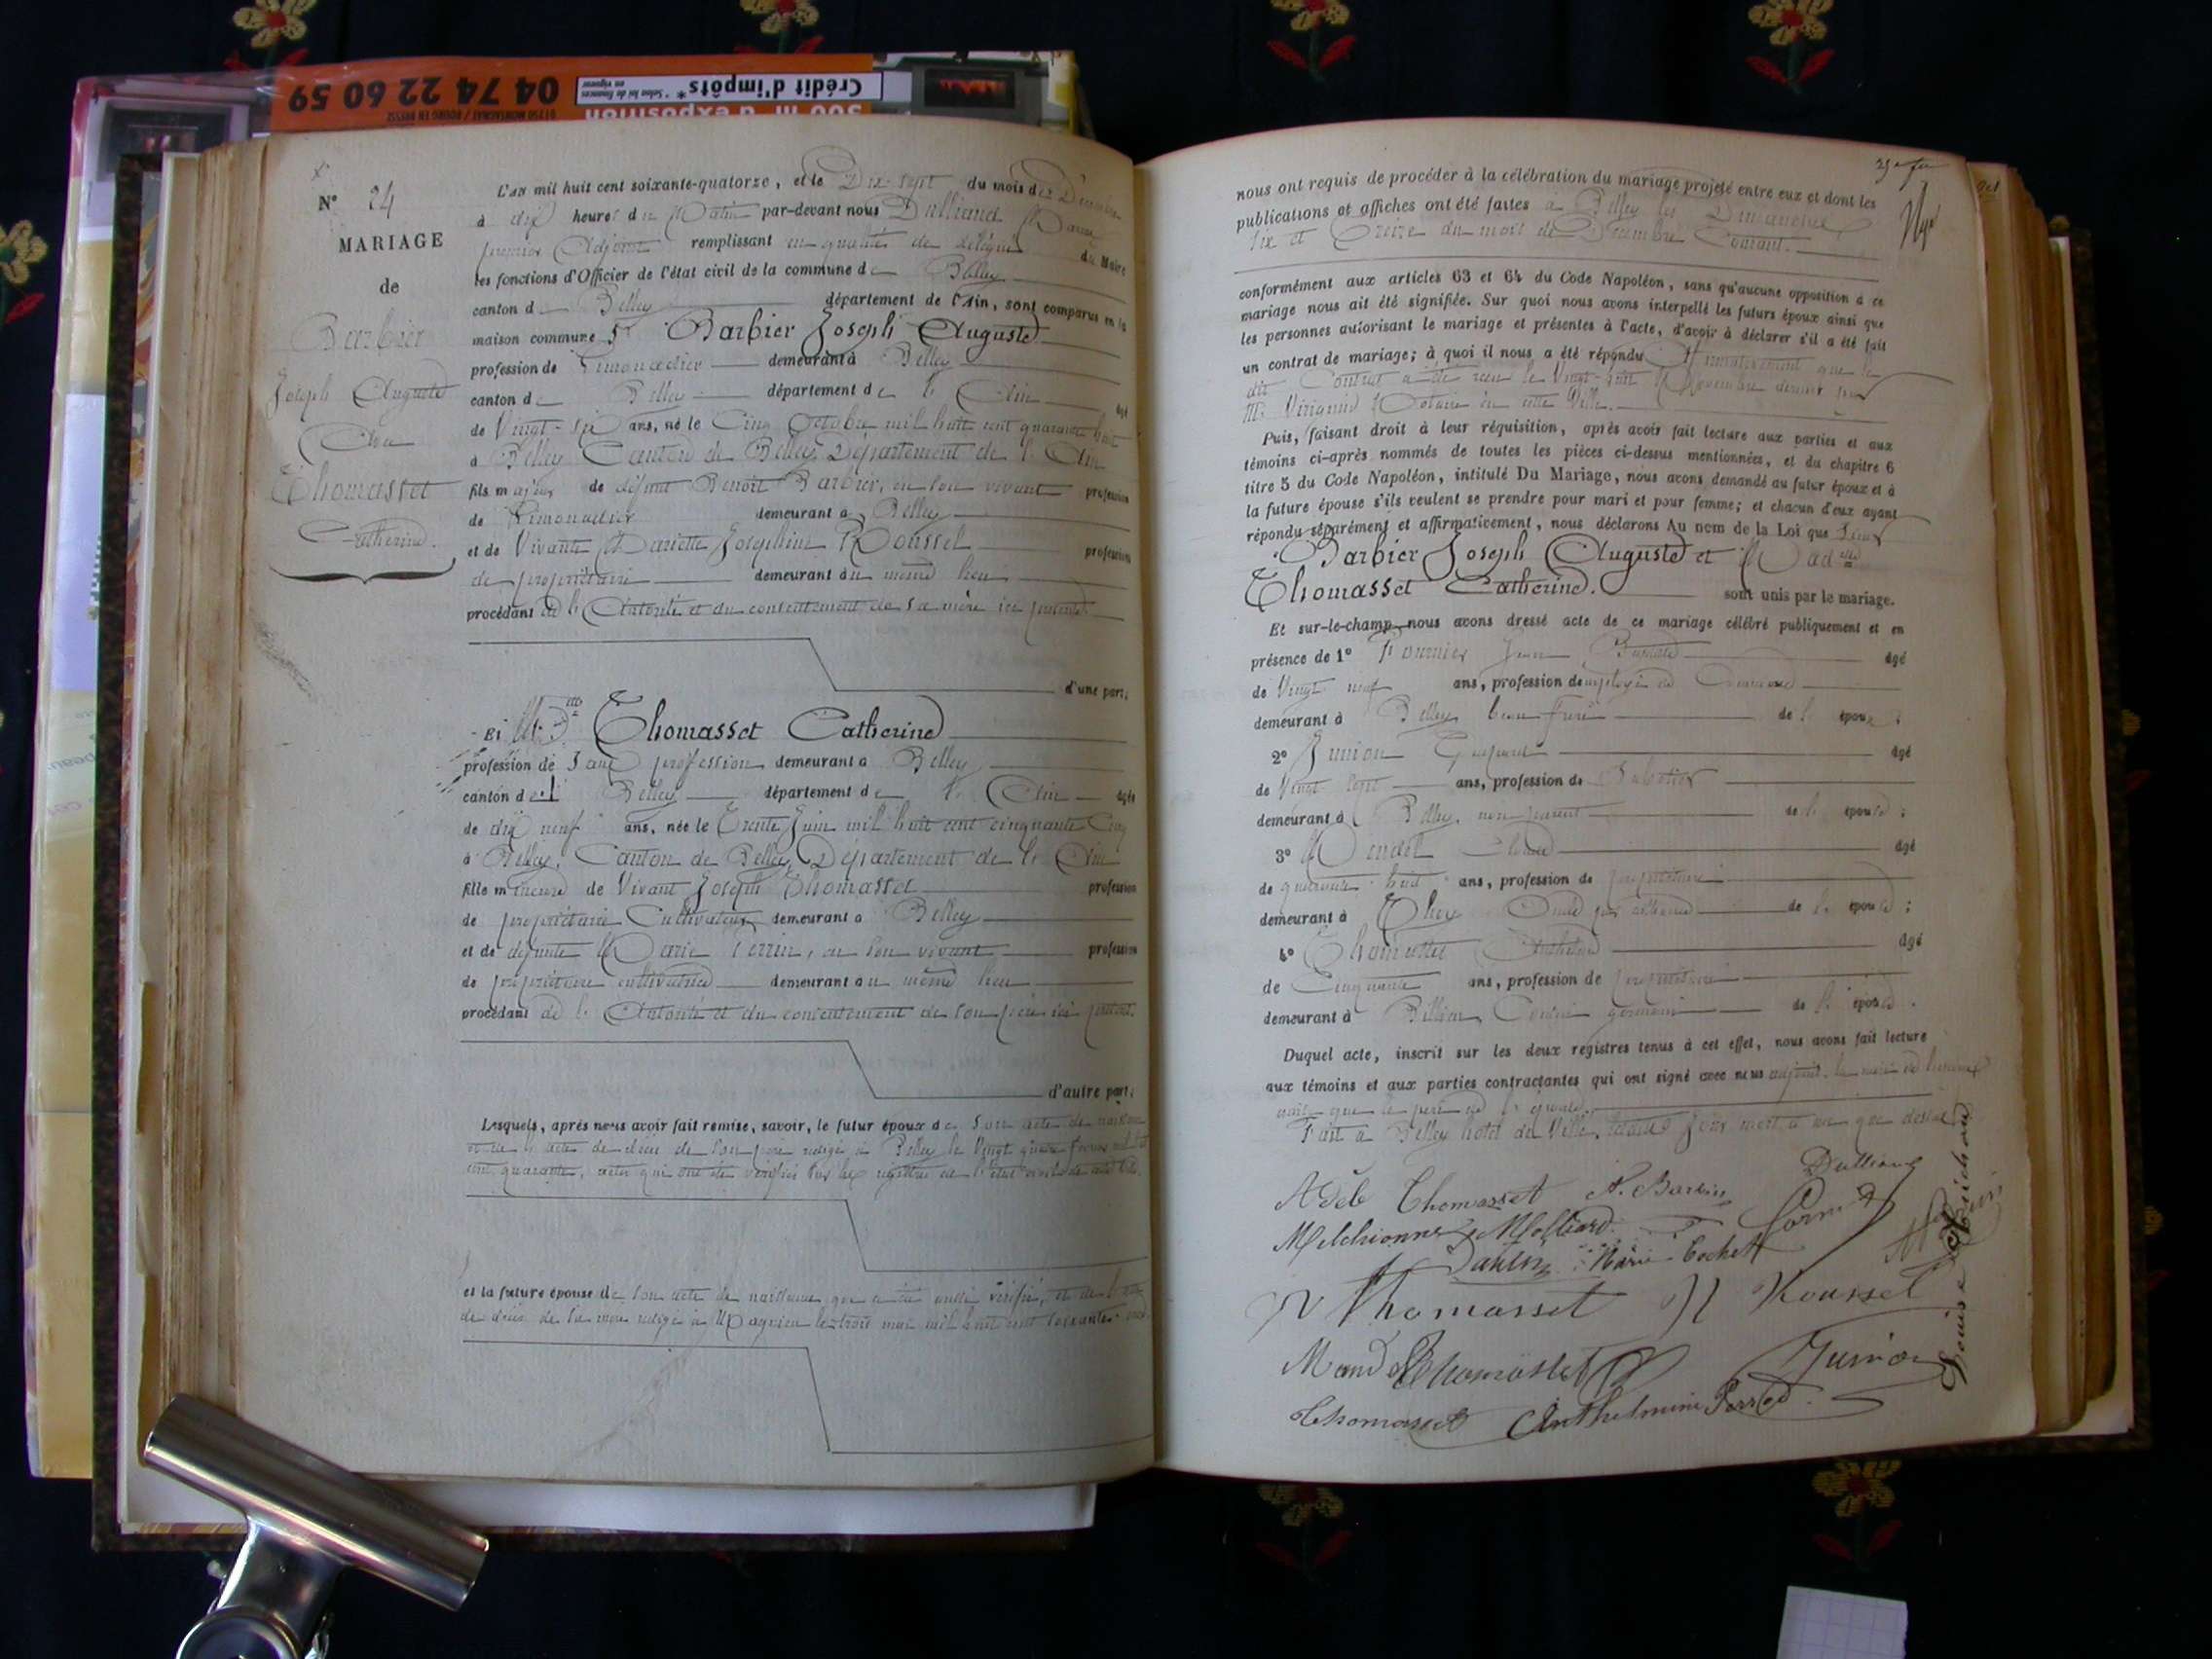 04 74 22 60 59
Crédit d'impôts*
* Selon loi de finances
en vigueur
01250 MONTAGNAT / BOURG EN BRESSE
d'exposition
N° 24
MARIAGE
de
Barbier
Joseph Auguste
Et
Thomasset
Catherine.
L'an mil huit cent soixante-quatorze, et le Dix-sept du mois de Décembre
à dix heures du Matin par-devant nous Dulliand
premier Adjoint remplissant en qualité de délégué du Maire
les fonctions d'Officier de l'état civil de la commune de Belley
canton de Belley département de l'Ain, sont comparus en la
maison commune Sr Barbier Joseph Auguste
profession de Limonadier demeurant à Belley
canton de Belley département de l'Ain âgé
de Vingt-six ans, né le Cinq Octobre mil huit cent quarante huit
à Belley Canton de Belley Département de l'Ain
fils majeur de défunt Benoît Barbier, en son vivant profession
de Limonadier demeurant à Belley
et de Vivante Mariette Joséphine Roussel profession
de propriétaire demeurant au même lieu
procédant de l'Autorité et du consentement de sa mère ici présente
d'une part;
Et Melle Thomasset Catherine
profession de Sans profession demeurant à Belley
canton de Belley département de l'Ain âgée
de dix neuf ans, née le Trente Juin mil huit cent cinquante Cinq
à Belley, Canton de Belley Département de l'Ain
fille mineure de Vivant Joseph Thomasset profession
de propriétaire Cultivateur demeurant à Belley
et de défunte Marie Perrin, en son vivant profession
de propriétaire cultivatrice demeurant au même lieu
procédant de l'Autorité et du consentement de son père ici présent.
d'autre part;
Lesquels, après nous avoir fait remise, savoir, le futur époux de son acte de naissance
et de l'acte de décès de son père rédigé à Belley le Vingt
actes qui ont été vérifiés sur les registres de l'état civil
et la future épouse de son acte de naissance que a été aussi vérifié, et de
de décès de sa mère rédigé à Magnieu le trois mai mil huit cent soixante
nous ont requis de procéder à la célébration du mariage projeté entre eux et dont les
publications et affiches ont été faites à Belley les Dimanches
Six et Treize du mois de Décembre Courant.
conformément aux articles 63 et 64 du Code Napoléon, sans qu'aucune opposition à ce
mariage nous ait été signifiée. Sur quoi nous avons interpellé les futurs époux ainsi que
les personnes autorisant le mariage et présentes à l'acte, d'avoir à déclarer s'il a été fait
un contrat de mariage; à quoi il nous a été répondu Affirmativement que le
dit Contrat a été reçu le Vingt-huit Novembre dernier par
Me Notaire en cette Ville.
Puis, faisant droit à leur réquisition, après avoir fait lecture aux parties et aux
témoins ci-après nommés de toutes les pièces ci-dessus mentionnées, et du chapitre 6
titre 5 du Code Napoléon, intitulé Du Mariage, nous avons demandé au futur époux et à
la future épouse s'ils veulent se prendre pour mari et pour femme; et chacun d'eux ayant
répondu séparément et affirmativement, nous déclarons Au nom de la Loi que Sieur
Barbier Joseph Auguste et Madlle
Thomasset Catherine. sont unis par le mariage.
Et sur-le-champ nous avons dressé acte de ce mariage célébré publiquement et en
présence de 1° Fournier Jean âgé
de Vingt neuf ans, profession de employé de Commerce
demeurant à Belley beau frère de l'époux;
2° Junion âgé
de Vingt sept ans, profession de Sabotier
demeurant à Belley, non parent de l'épouse;
3° Mendel âgé
de quarante huit ans, profession de propriétaire
demeurant à Oncle par alliance de l'épouse;
4° Thomasset Anthelme âgé
de Cinquante ans, profession de propriétaire
demeurant à Billieu Cousin germain de l'épouse.
Duquel acte, inscrit sur les deux registres tenus à cet effet, nous avons fait lecture
aux témoins et aux parties contractantes qui ont signé avec nous adjoint, la mère de l'époux
ainsi que le père de l'épouse
Fait à Belley hôtel de Ville, lesdits jour mois et an que dessus
Adèle Thomasset Dulliand
Melchionne Molliard
Marie Cochet
Thomasset Roussel
Thomasset Junion
Thomasset Anthelmine Perret
Louise